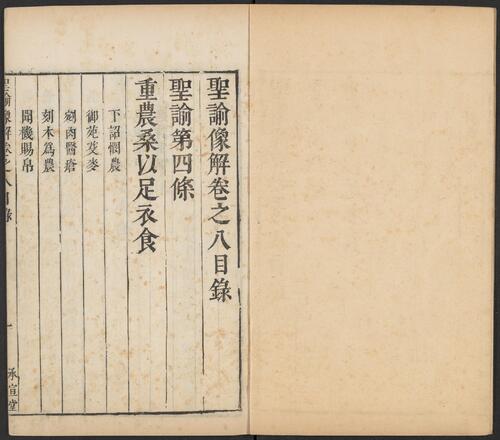 聖諭像解卷之八目錄
聖諭第四條
重農桑以足衣食
下詔憫農
御苑芟麥
剜肉醫瘡
刻木為農
聞機賜帛
聖諭像解卷之八目錄
一
承宣堂